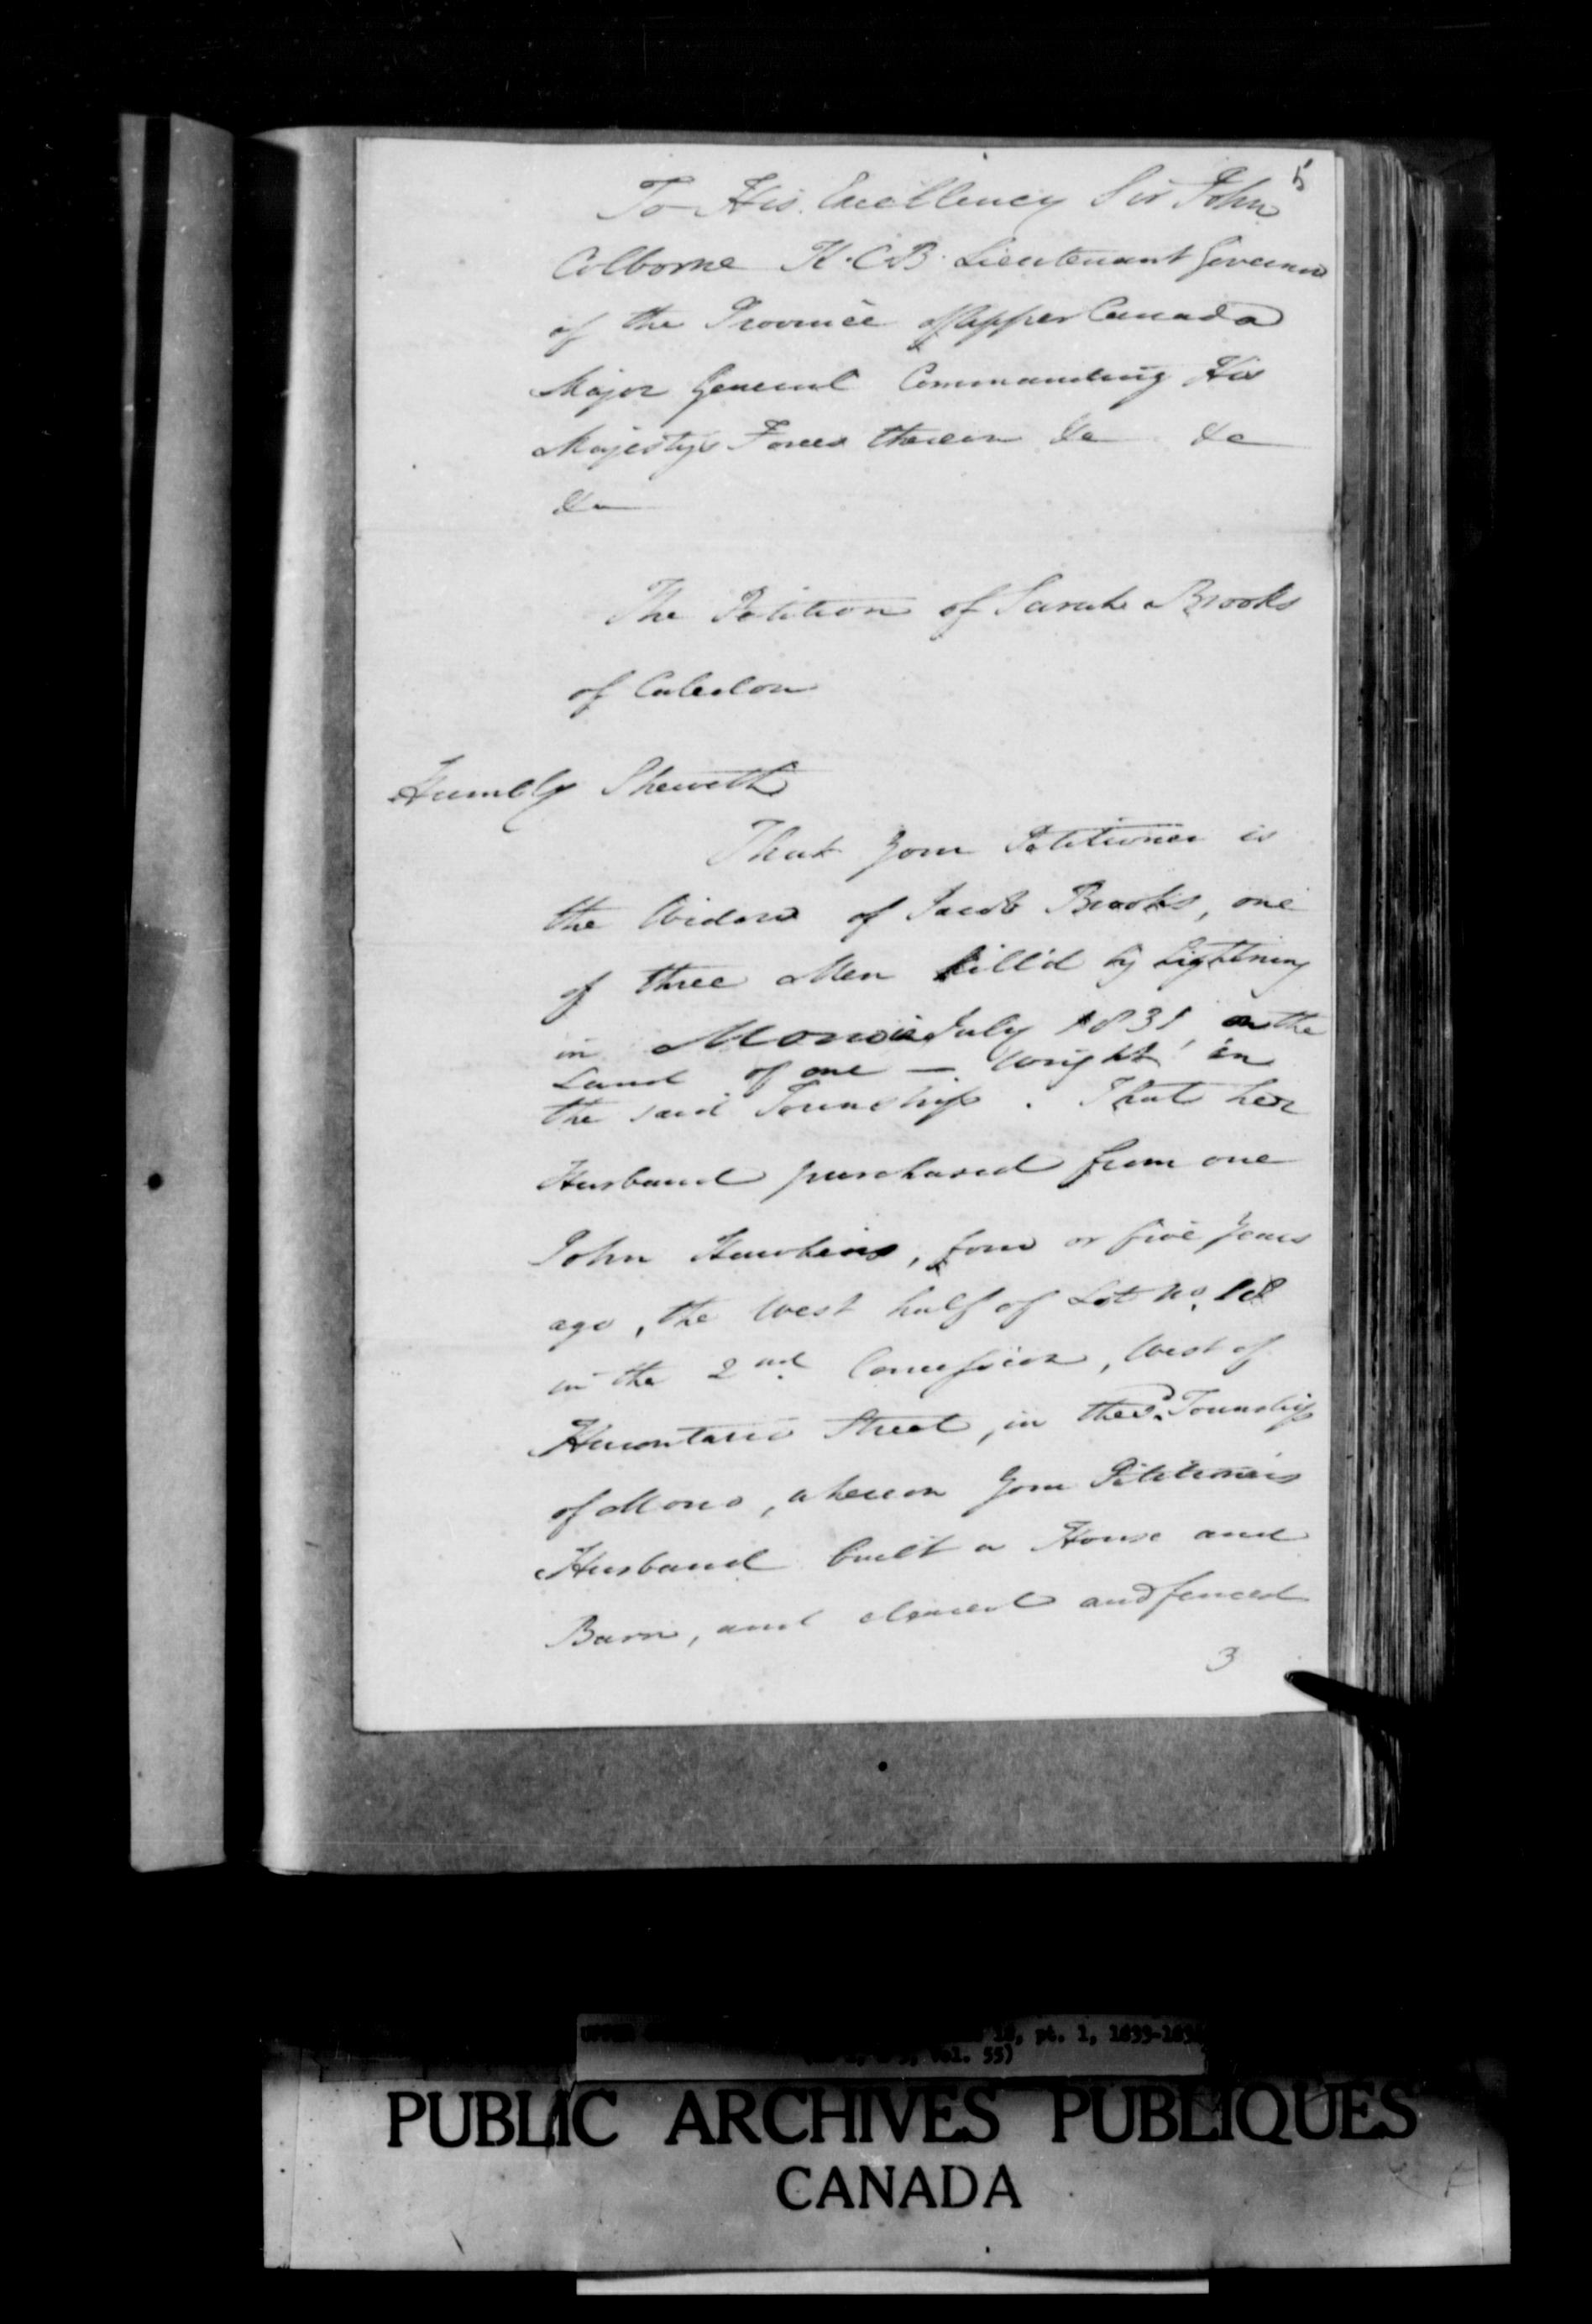 5
To His Excellency Sir John
Colborne K.C.B. Lieutenant Governor
of the Province of Upper Canada
Major General Commanding His
Majesty's Forces therein &c &c
&c
The Petition of Sarah Brooks
of Caledon
Humbly Sheweth
That your Petitioner is
the Widow of Jacob Brooks, one
of three Men kill'd by Lightning
in Mono in July 1831, on the
Land of one — Wright in
the said Township. That her
Husband purchased from one
John Hawkins, four or five years
ago, the West half of Lot No.
in the 2nd Concession, West of
Hurontario Street, in the sd. Township
of Mono, whereon your Petitioner's
Husband built a House and
Barn, and cleared and fenced
3
pt. 1, 1833-183
55)
PUBLIC ARCHIVES PUBLIQUES
CANADA